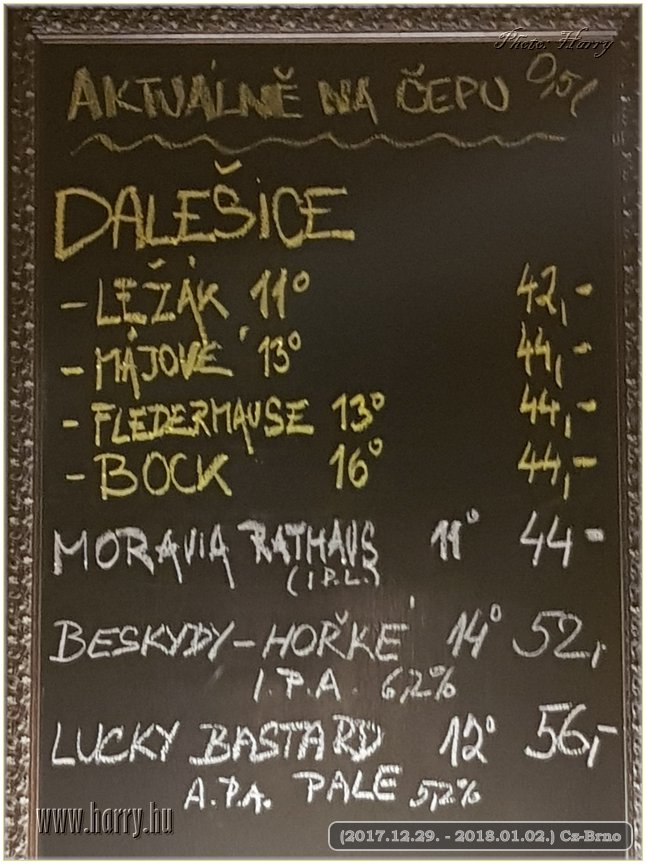 Photo: Harry
AKTUÁLNĚ NA ČEPU 0,5l
DALEŠICE
- LEŽÁK 11° 42,-
- MÁJOVÉ 13° 44,-
- FLEDERMAUSE 13° 44,-
- BOCK 16° 44,-
MORAVIA RATHAUS 11° 44-
(I.P.L.)
BESKYDY-HOŘKÉ 14° 52,-
I.P.A. 6,2%
LUCKY BASTARD 12° 56,-
A.P.A. PALE 5,2%
www.harry.hu
(2017.12.29. - 2018.01.02.) Cz-Brno